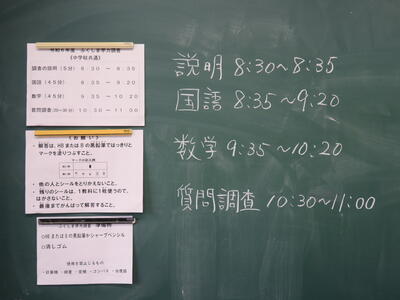 令和6年度 ふくしま学力調査
(小学校共通)
調査の説明(5分) 8:30 － 8:35
国語(45分) 8:35 － 9:20
数学(45分) 9:35 － 10:20
質問調査(20~30分) 10:30 － 11:00
《お願い》
・解答は、HBまたはBの黒鉛筆ではっきりと
マークを塗りつぶすこと。
マークの記入例
・他の人とシールをとりかえないこと。
・残りのシールは、1教科に1枚使うので、
はがさないこと。
・最後までがんばって解答すること。
ふくしま学力調査 準備物
○HBまたはBの黒鉛筆かシャープペンシル
○消しゴム
使用を禁止するもの
・計算機・線差・定規・コンパス・分度器
説明 8:30~8:35
国語 8:35~9:20
数学 9:35~10:20
質問調査 10:30~11:00